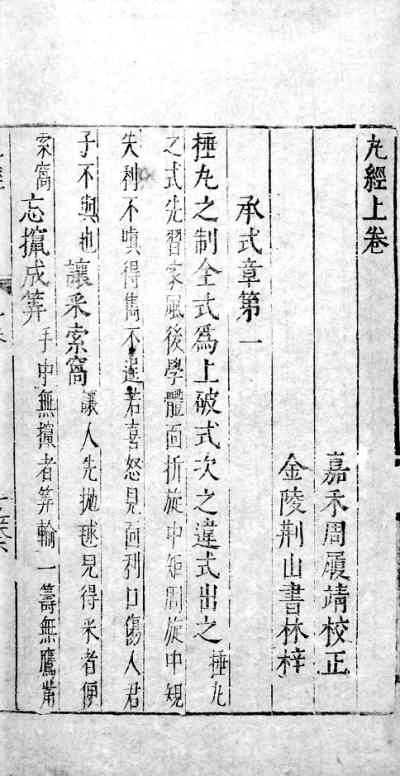 丸經上卷
嘉禾周履靖校正
金陵荆山書林梓
承式章第一
捶丸之制全式為上破式次之違式出之捶丸
之式先習家風後學體面折旋中矩周旋中規
失利不嗔得雋不逞若喜怒見面利口傷人君
子不與也讓采索窩讓人先拋毬見得采者便
索窩忘攛成筭手中無攛者筭輸一籌無鷹觜